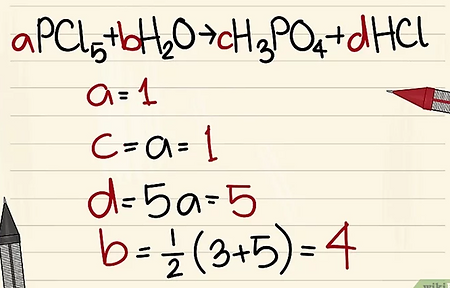 aPCl₅+bH₂O→cH₃PO₄+dHCl
a=1
c=a=1
d=5a=5
b=½(3+5)=4
wiki